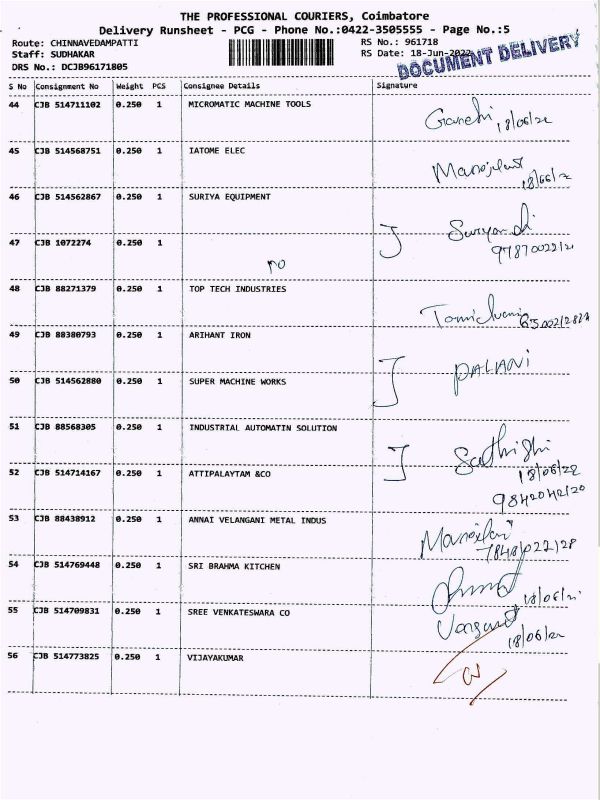 THE PROFESSIONAL COURIERS, Coimbatore
Delivery Runsheet - PCG - Phone No.:0422-3505555 - Page No.:5
Route: CHINNAVEDAMPATTI RS No.: 961718
Staff: SUDHAKAR RS Date: 18-Jun-2022
DRS No.: DCJB96171805
DOCUMENT DELIVERY
S No Consignment No Weight PCS Consignee Details Signature
44 CJB 514711102 0.250 1 MICROMATIC MACHINE TOOLS
18/06/22
45 CJB 514568751 0.250 1 IATOME ELEC
46 CJB 514562867 0.250 1 SURIYA EQUIPMENT
47 CJB 1072274 0.250 1
48 CJB 88271379 0.250 1 TOP TECH INDUSTRIES
49 CJB 88380793 0.250 1 ARIHANT IRON
PALANI
50 CJB 514562880 0.250 1 SUPER MACHINE WORKS
51 CJB 88568305 0.250 1 INDUSTRIAL AUTOMATIN SOLUTION
18/06/22
52 CJB 514714167 0.250 1 ATTIPALAYTAM &CO
53 CJB 88438912 0.250 1 ANNAI VELANGANI METAL INDUS
54 CJB 514769448 0.250 1 SRI BRAHMA KITCHEN
55 CJB 514709831 0.250 1 SREE VENKATESWARA CO
18/06/22
56 CJB 514773825 0.250 1 VIJAYAKUMAR